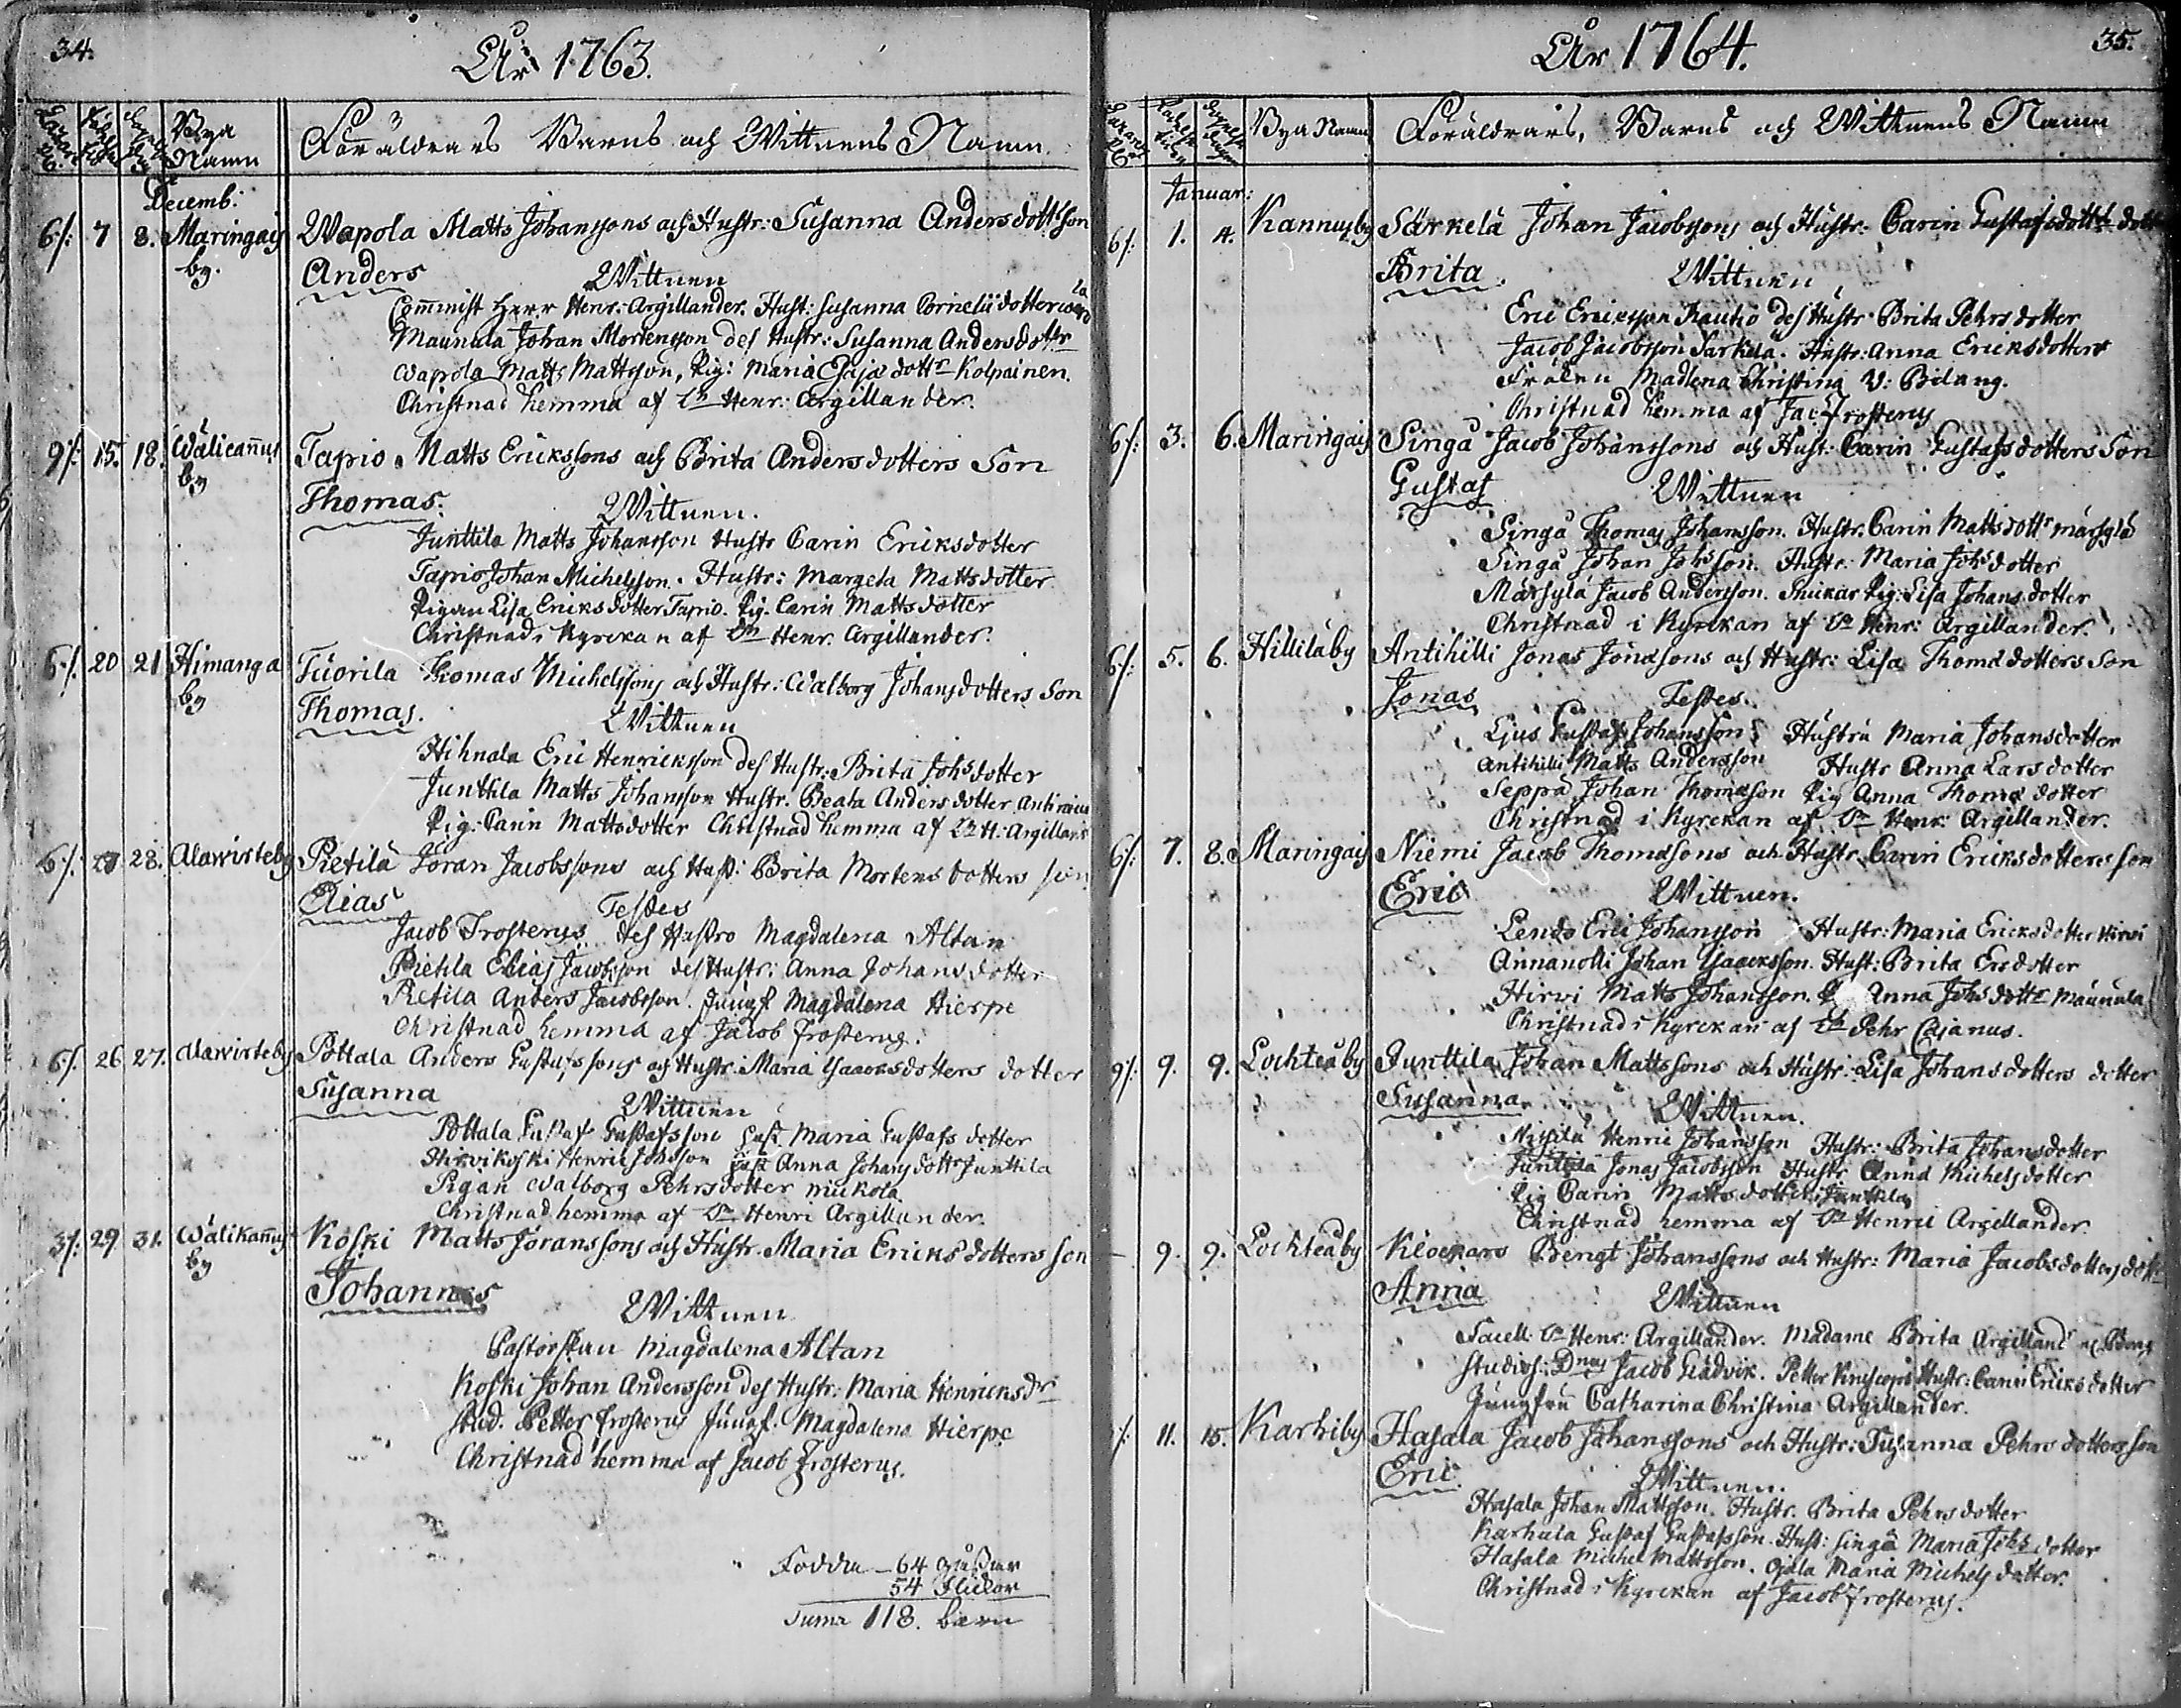 34.
År 1763.
Bya Namn
Föräldrars Barns och Wittnens Namn.
Decemb:
6/: 7 8. Maringais Wapola Matts Johanssons och Hustr: Susanna Andersdotts son
by. Anders Wittnen
Commist Herr Henr: Argillander. Hust: Susanna Cornelii dotter
Maunula Johan Mortensson des Hustr: Susanna Andersdottr
Wapola Matts Mattsson, Pig: Maria Esajæ dottr Kolpainen.
Christnad hemma af Dn Henr: Argillander.
9/: 15. 18. Wälicañus Tapio Matts Erickssons och Brita Andersdotters Son
by Thomas: Wittnen.
Junttila Matts Johansson Hustr Carin Ericksdotter
Tapio Johan Michelsson. Hustr: Margeta Mattsdotter
Pigan Lisa Eriksdotter Tapio. Pig. Carin Mattsdotter
Christnad i Kyrckan af Dn Henr. Argillander.
6/. 20 21 Himanga Tüorila Thomas Michelssons och Hustr: Walborg Johansdotters Son
by Thomas. Wittnen
Hihnala Eric Henricksson des Hustr: Brita Johsdotter
Junttila Matts Johansson Hustr. Beata Andersdotter
Pig: Carin Mattsdotter Christnad hemma af Dn H: Argillander
6/. 28. Alawirteby Pietilä Jöran Jacobssons och Hust: Brita Mortens dotters son
Elias Testes
Jacob Frosterus des Hustro Magdalena Altan
Pietila Elias Jacobsson des Hustr: Anna Johansdotter
Pietila Anders Jacobsson. Jungf. Magdalena Hierpe
Christnad hemma af Jacob Frosterus.
6/. 26 27. Alawirteby Pottala Anders Gustafssons och Hustr: Maria Isaacksdotters dotter
Susanna Wittnen
Pottala Gustaf Gustafsson Hust. Maria Gustafsdotter
Hirvikoski Henric Johsson Hust Anna Johansdottr Junttila
Pigan Walborg Pehrsdotter Nickola
Christnad hemma af Dn Henric Argillander.
3/: 29 31. Wälikañus Koski Matts Joranssons och Hustr. Maria Ericksdotters son
by Johannes Wittnen
Pastorskan Magdalena Altan
Koski Johan Andersson des Hustr: Maria Henricksdr
Stud. Petter Frosterus Jungf. Magdalena Hierpe
Christnad hemma af Jacob Frosterus.
Födda 64 gåssar
54 flickor
Suma 118. barn
År 1764.
35.
Bya Namn Föräldrars, Barns och Wittnens Namn
Januar:
6/. 1. 4. Kannusby Särkelä Johan Jacobssons och Hustr: Carin Gustafsdotters dott
Brita. Wittnen
Eric Ericksson Rautio des Hustr. Brita Pehrsdotter
Jacob Jacobsson Sarkela. Hustr: Anna Ericksdotter
Frölen Madlena Christina V: Bilang.
Christnad hemma af Jac: Frosterus
6/: 3. 6. Maringais Singå Jacob Johanssons och Hust: Carin Gustafsdotters Son
Gustaf Wittnen
Singå Thomas Johansson. Hustr. Carin Mattsdottr Märsylä
Singå Johan Johsson. Hustr: Maria Johsdotter
Märsylä Jacob Andersson. Pig: Lisa Johansdotter
Christnad i Kyrckan af Dn Henr: Argillander.
6/: 5. 6. Hilliläby Antihilli Jonas Jonæsons och Hustr: Lisa Thomædotters Son
Jonas Testes.
Ljus Gustaf Johansson Hustru Maria Johansdotter
Antihilli Matts Andersson Hustr Anna Larsdotter
Seppä Johan Thomæson Pig Anna Thomædotter
Christnad i Kyrckan af Dn Henr: Argillander.
6/: 7. 8. Maringais Niemi Jacob Thomæsons och Hustr. Carin Ericksdotters son
Eric Wittnen.
Eric Johansson Hustr: Maria Ericksdotter Hirvi
Annanolli Johan Isaacksson. Hust: Brita Ersdotter
Hirvi Matts Johansson. Anna Johsdottr Maunula
Christnad i Kyrckan af Dn Pehr Cajanus.
9/: 9. 9. Lochteåby Junttila Johan Mattssons och Hustr: Lisa Johansdotters dotter
Susanna. Wittnen.
Henric Johansson Hustr: Brita Johansdotter
Junttila Jonas Jacobsson Hustr: Anna Michelsdotter
Pig Carin Mattsdotter Junttila
Christnad hemma af Dn Henric Argillander.
9. 9. Lochteåby Klockars Bengt Johanssons och Hustr: Maria Jacobsdotters dottr
Anna Wittnen
Sacell. Dn Henr: Argillander. Madame Brita Argilland
Studios: Dnus Jacob Petter Hustr: Carin Ericksdotter
Jungfru Catharina Christina Argillander.
/: 11. 15. Karhiby Hasala Jacob Johanssons och Hustr: Susanna Pehrsdotters son
Eric Wittnen.
Hasala Johan Mattsson. Hustr. Brita Pehrsdotter
Karhula Gustaf Gustafsson. Hust: Singå Maria Johsdotter
Hasala Michel Mattsson. Ojala Maria Michelsdotter.
Christnad i Kyrckan af Jacob Frosterus.